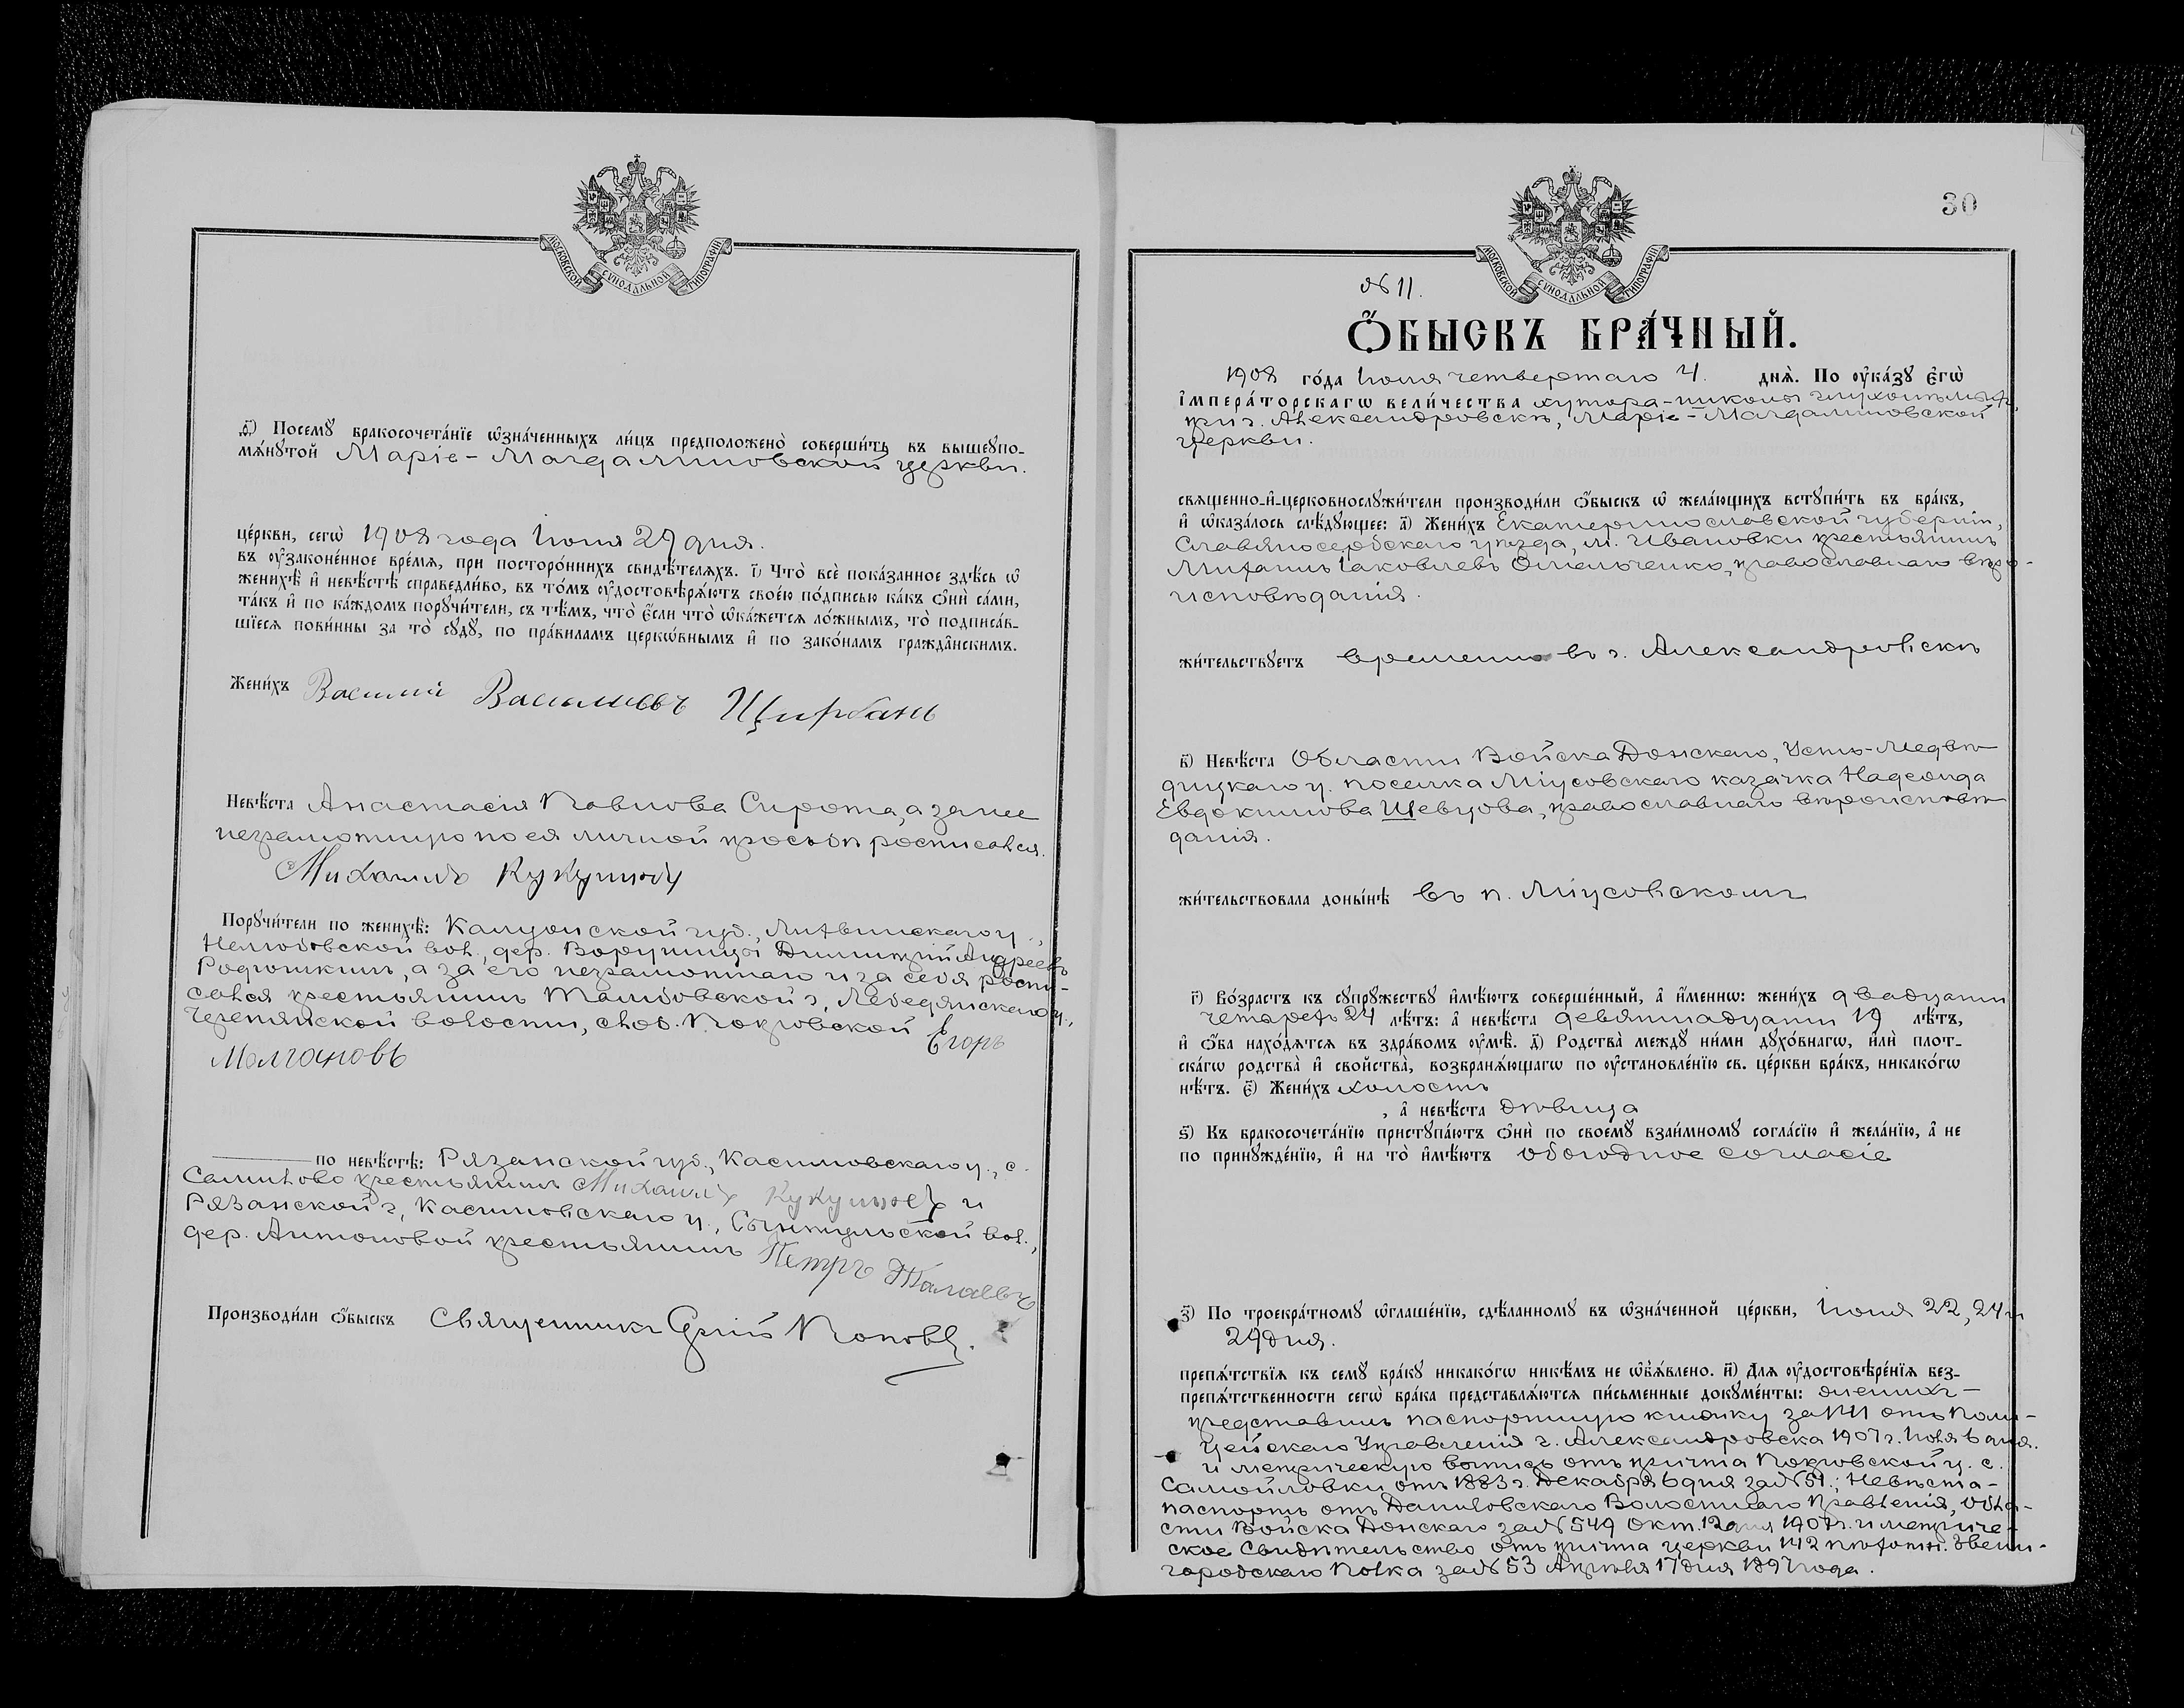 МОСКОВСКОЙ СУНОДАЛЬНОЙ ТИПОГРАФІИ
ѳ҃) Посемꙋ бракосочета́нїе ѡ҆зна́ченныхъ ли́цъ предположено̀ соверши́ть въ вышеꙋпо-
мѧ́нꙋтой Маріе-Магдалиновской церкви.
це́ркви, сегѡ̀ 1908 года Іюня 29 дня.
въ ᲂу҆зако́не́нное вре́мѧ, при посторо́ннихъ свидѣ́телѧхъ. і҃) Что̀ всѐ пока́занное здѣ́сь ѡ҆
женихѣ̀ и҆ невѣ́стѣ справедли́во, въ то́мъ ᲂу҆достовѣрѧ́ютъ свое́ю по́дписью ка́къ ѻ҆нѝ са́ми,
та́къ и҆ по ка́ждомъ порꙋчи́тели, съ тѣ́мъ, что̀ є҆́сли что̀ ѡ҆ка́жетсѧ ло́жнымъ, то̀ подписа́в-
шїесѧ пови́нны за то̀ сꙋдꙋ̀, по пра́виламъ церкѡ́внымъ и҆ по зако́намъ гражда̑нскимъ.
Жени́хъ Василій Васильевъ Щирбань
Невѣ́ста Анастасія Павлова Сирота, а за нее
неграмотную по ея личной просьбѣ росписался.
Михаилъ Кукушкев
Порꙋчи́тели по женихѣ̀: Калужской губ., Лихвинскаго у.,
вол., дер. Димитрій Андреевъ
Родюшкинъ, а за его неграмотнаго и за себя роспи-
сался крестьянинъ Тамбовской г., Лебедянскаго у.,
волости, слоб. Покровской Егоръ
Молчановъ
по невѣ́стѣ: Рязанской губ., Касимовскаго у., с.
крестьянинъ Михаилъ Кукушкев и
Рязанской г., Касимовскаго у., Сынтульской вол.,
дер. Антоновой крестьянинъ Петръ
Производи́ли ѻ҆́быскъ Священникъ Попов.
30
МОСКОВСКОЙ СУНОДАЛЬНОЙ ТИПОГРАФІИ
№ 11.
Ѻ҆́БЫСКЪ БРА́ЧНЫЙ.
1908 го́да Іюля четвертаго 4. днѧ̀. По ᲂу҆ка́зꙋ є҆гѡ̀
і҆мпера́торскагѡ вели́чества хутора-школы глухонѣмыхъ,
при г. Александровскѣ, Маріе-Магдалиновской
церкви.
свѧщенно-и҆-церковнослꙋжи́тели производи́ли ѻ҆́быскъ ѡ҆ жела́ющихъ встꙋпи́ть въ бра́къ,
и҆ ѡ҆каза́лось слѣ́дꙋющее: а҃) Жени́хъ Екатеринославской губерніи,
Славяносербскаго уѣзда, м. Ивановки крестьянинъ
Михаилъ Іаковлевъ Омельченко, православнаго вѣро-
исповѣданія.
жи́тельствꙋетъ временно въ г. Александровскѣ
в҃) Невѣ́ста Области Войска Донскаго, Усть-Медвѣ-
дицкаго у. поселка Міусовскаго казачка Надежда
Евдокимова Шевцова, православнаго вѣроисповѣ-
данія.
жи́тельствовала доны́нѣ въ п. Міусовскомъ
г҃) Во́зрастъ къ сꙋпрꙋ́жествꙋ и҆мѣ́ютъ соверше́нный, а҆ и҆́меннѡ: жени́хъ двадцати
четырехъ 24 лѣ́тъ: а҆ невѣ́ста девятнадцати 19 лѣ́тъ,
и҆ ѻ҆́ба нахо́дѧтсѧ въ здра́вомъ ᲂу҆мѣ̀. д҃) Родства̀ междꙋ̀ ни́ми дꙋхо́внагѡ, и҆лѝ плот-
ска́гѡ родства̀ и҆ свойства̀, возбранѧ́ющагѡ по ᲂу҆становле́нїю св. це́ркви бра́къ, никако́гѡ
нѣ́тъ. є҃) Жени́хъ холостъ
, а҆ невѣ́ста дѣвица
ѕ҃) Къ бракосочета́нїю пристꙋпа́ютъ ѻ҆нѝ по своемꙋ̀ взаи́мномꙋ согла́сїю и҆ жела́нїю, а҆ не
по принꙋжде́нїю, и҆ на то̀ и҆мѣ́ютъ обоюдное согласіе
з҃) По троекра́тномꙋ ѡ҆глаше́нїю, сдѣ́ланномꙋ въ ѡ҆зна́ченной це́ркви, Іюня 22, 24 и
29 дня.
препѧ́тствїѧ къ семꙋ̀ бра́кꙋ никако́гѡ никѣ́мъ не ѡ҆б̾ѧ́влено. и҃) Длѧ ᲂу҆достовѣре́нїѧ без-
препѧ́тственности сегѡ̀ бра́ка представлѧ́ютсѧ пи́сьменные докꙋме́нты: женихъ-
представилъ паспортную книжку за № отъ Поли-
цейскаго Управленія г. Александровска 1907 г. 6 дня.
и метрическую выпись отъ причта Покровской ц. с.
Самойловки отъ 1883 г. Декабря 6 дня за № 51.; Невѣста-
паспортъ отъ Даниловскаго Волостнаго Правленія, Обла-
сти Войска Донскаго за № 549 Окт. 12 дня 1907 г. и метриче-
ское Свидѣтельство отъ причта церкви 142 пѣхотн. Звени-
городскаго Полка за № 53 Апрѣля 17 дня 1897 года.